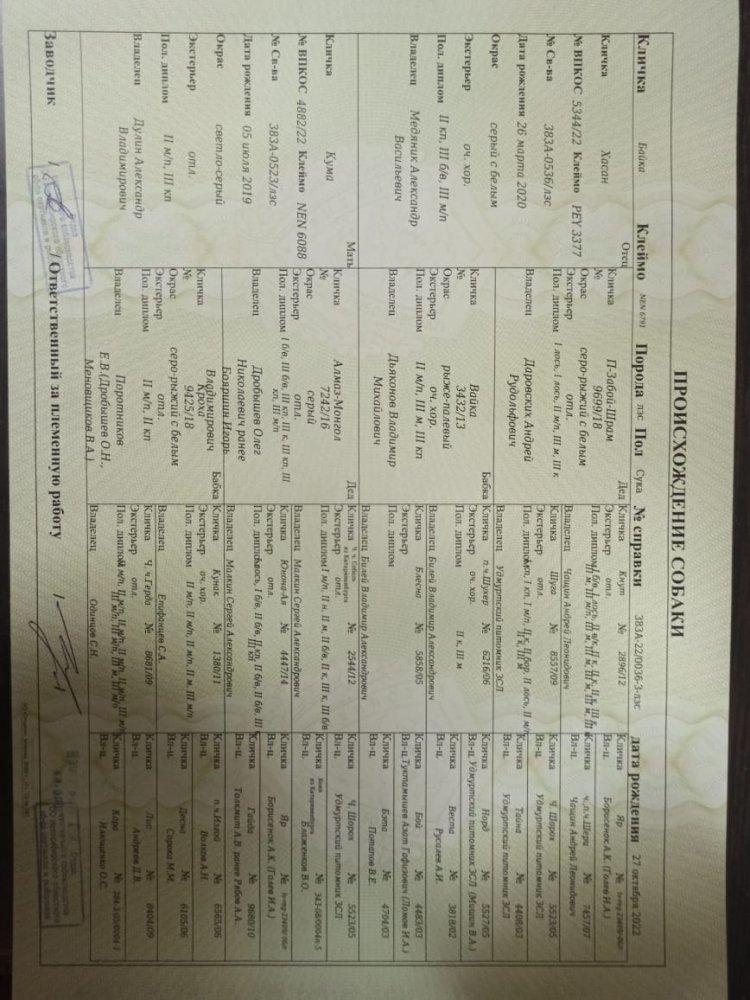 ПРОИСХОЖДЕНИЕ СОБАКИ
Кличка Байка Клеймо NEN 6793 Порода лзс Пол Сука № справки 383А-22/0036-3-лзс дата рождения 27 октября 2022
Отец
Кличка Хасан
№ ВПКОС 5344/22 Клеймо PEY 3377
№ Св-ва 383А-0536/лзс
Дата рождения 26 марта 2020
Окрас серый с белым
Экстерьер оч. хор.
Пол. диплом II кп, III б/в, III м/п
Владелец Медяник Александр
Васильевич
Мать
Кличка Кума
№ ВПКОС 4882/22 Клеймо NEN 6088
№ Св-ва 383А-0523/лзс
Дата рождения 05 июля 2019
Окрас светло-серый
Экстерьер отл.
Пол. диплом II м/п, III кп
Владелец Дулин Александр
Владимирович
Дед
Кличка П-Забой-Шрам
№ 9699/18
Окрас серо-рыжий с белым
Экстерьер отл.
Пол. диплом I лось, I лось, II м/п, III м, III к
Владелец Даровских Андрей
Рудольфович
Бабка
Кличка Вайка
№ 3432/13
Окрас рыже-палевый
Экстерьер оч. хор.
Пол. диплом II м/п, III м, III кп
Владелец Дьяконов Владимир
Михайлович
Дед
Кличка Алмаз-Монгол
№ 7242/16
Окрас серый
Экстерьер отл.
Пол. диплом I б/в, III б/в, III кп, III к, III кп, III
кп, III м/п
Владелец Дробышев Олег
Николаевич ранее
Бояршин Игорь
Владимирович
Бабка
Кличка Кроха
№ 9425/18
Окрас серо-рыжий с белым
Экстерьер отл.
Пол. диплом II м/п, II кп
Владелец Поротников
Е.В.(Дробышев О.Н.,
Меновщиков В.А.)
Кличка Кнут № 2896/12
Экстерьер отл.
Пол. диплом
Владелец Чащин Андрей Леонидович
Кличка Шуга № 8557/09
Экстерьер отл.
Пол. диплом
Владелец Удмуртский питомник ЗСЛ
Кличка п.ч.Шухер № 6216/06
Экстерьер оч. хор.
Пол. диплом II к, III м
Владелец Билей Владимир Александрович
Кличка Блесна № 5858/05
Экстерьер отл.
Пол. диплом
Владелец Билей Владимир Александрович
Кличка Ч. ч. Соболь из Екатеринбурга № 2544/12
Экстерьер отл.
Пол. диплом I м/п, II н, II м, II б/в, II к, III к, III б/в
Владелец Малкин Сергей Александрович
Кличка Юнона-Ая № 4447/14
Экстерьер отл.
Пол. диплом
Владелец Малкин Сергей Александрович
Кличка Кунак № 1380/11
Экстерьер оч. хор.
Пол. диплом II м/п, II м/п, II м/п, II м, III м/п
Владелец Епифанцев С.А.
Кличка Ч. ч.Герда № 8681/09
Экстерьер отл.
Пол. диплом
Владелец Одинцов С.Н.
Кличка Яр №
Вл-ц. Борисенок А.К. (Голев И.А.)
Кличка ч.,п.ч.Шери № 7457/07
Вл-ц. Чащин Андрей Леонидович
Кличка Ч. Шорох № 5523/05
Вл-ц. Удмуртский питомник ЗСЛ
Кличка Тайна № 4408/03
Вл-ц. Удмуртский питомник ЗСЛ
Кличка Норд № 5527/05
Вл-ц. Удмуртский питомник ЗСЛ (Мишин В.А.)
Кличка Веста № 3818/02
Вл-ц. Русалев А.И.
Кличка Бой № 4483/03
Вл-ц. Туктамышев Азат Гафизович (Ломов И.А.)
Кличка Бэта № 4704/03
Вл-ц. Потапов В.Е.
Кличка Ч. Шорох № 5523/05
Вл-ц. Удмуртский питомник ЗСЛ
Кличка из Екатеринбурга №
Вл-ц. Блаженков В.О.
Кличка Яр №
Вл-ц. Борисенок А.К. (Голев И.А.)
Кличка Гайда № 9680/10
Вл-ц. Толкмит А.В. ранее Рябов А.А.
Кличка п.ч.Изгой № 6565/06
Вл-ц. Волков А.Н.
Кличка Десна № 6105/06
Вл-ц. Сорока М.М.
Кличка Лис № 8404/09
Вл-ц. Андреев Д.В.
Кличка Кара №
Вл-ц. Илюшенко О.С.
Заводчик / / Ответственный за племенную работу /